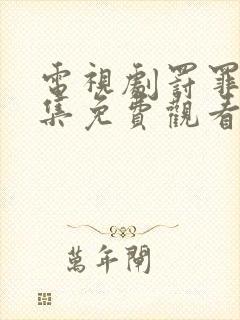 電視劇罰罪
集免費觀看
萬年閘